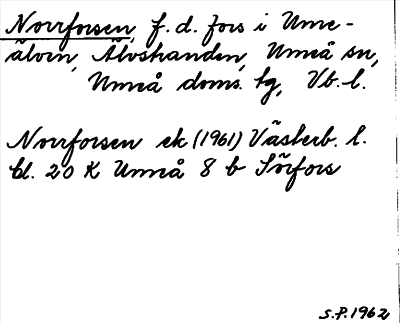 Norrforsen, f.d. fors i Ume-
älven, Älvshanden, Umeå sn,
Umeå doms. tg, Vb. l.
Norrforsen ek (1961) Västerb. l.
bl. 20 K Umeå 8 b Sörfors
S.P. 1962